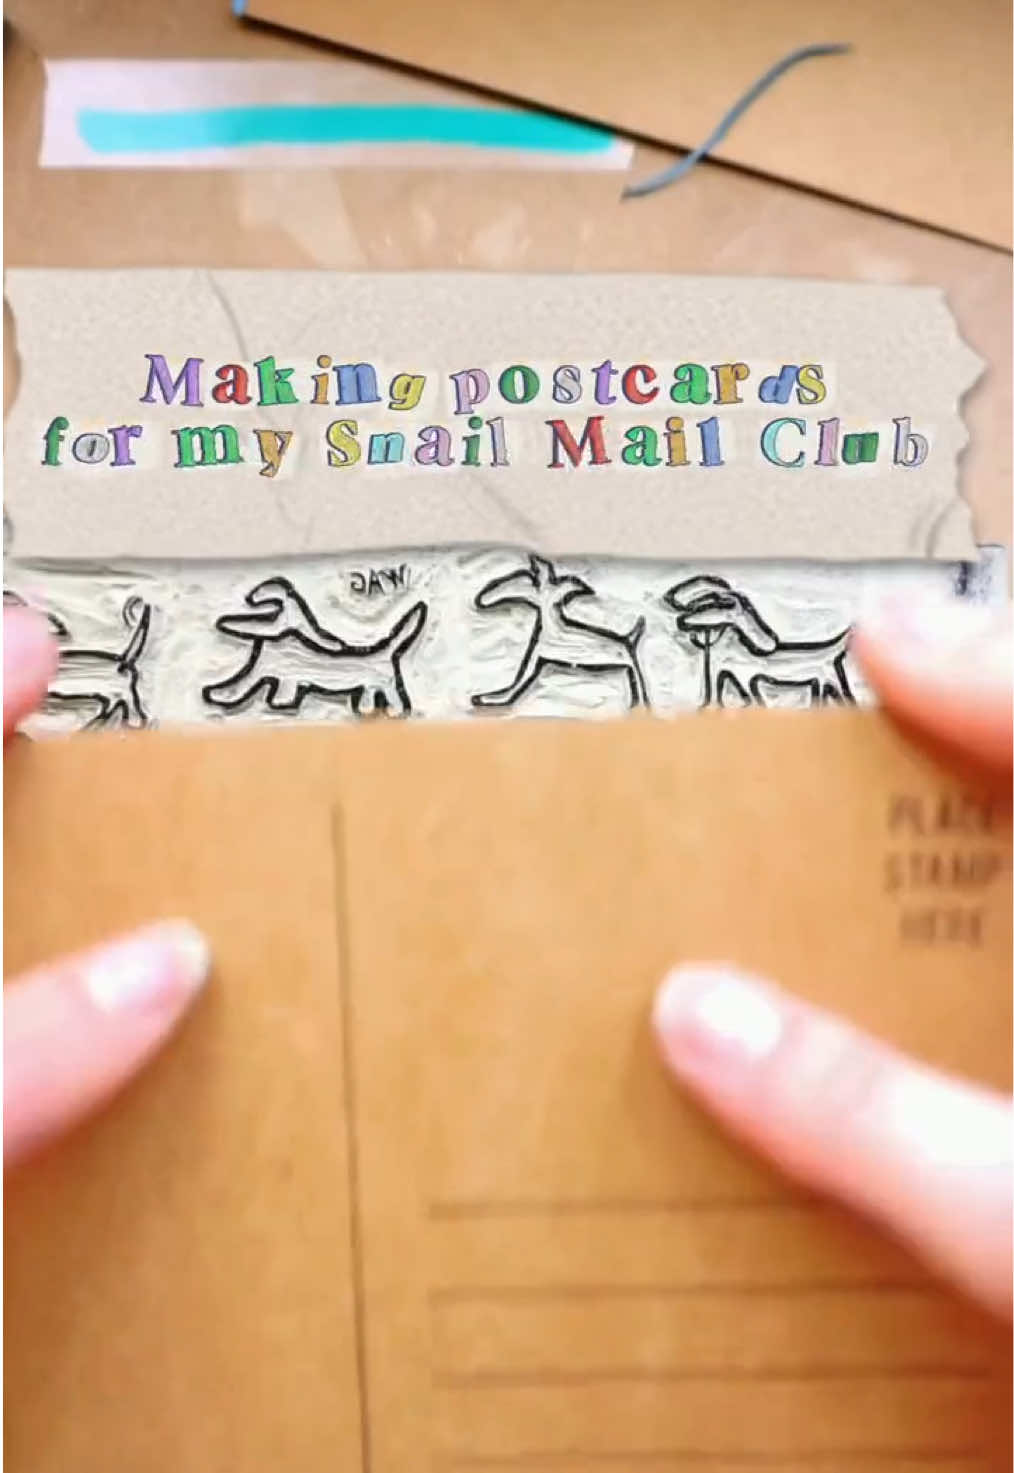 Making postcards
for my Snail Mail Club
WAG
PLACE
STAMP
HERE